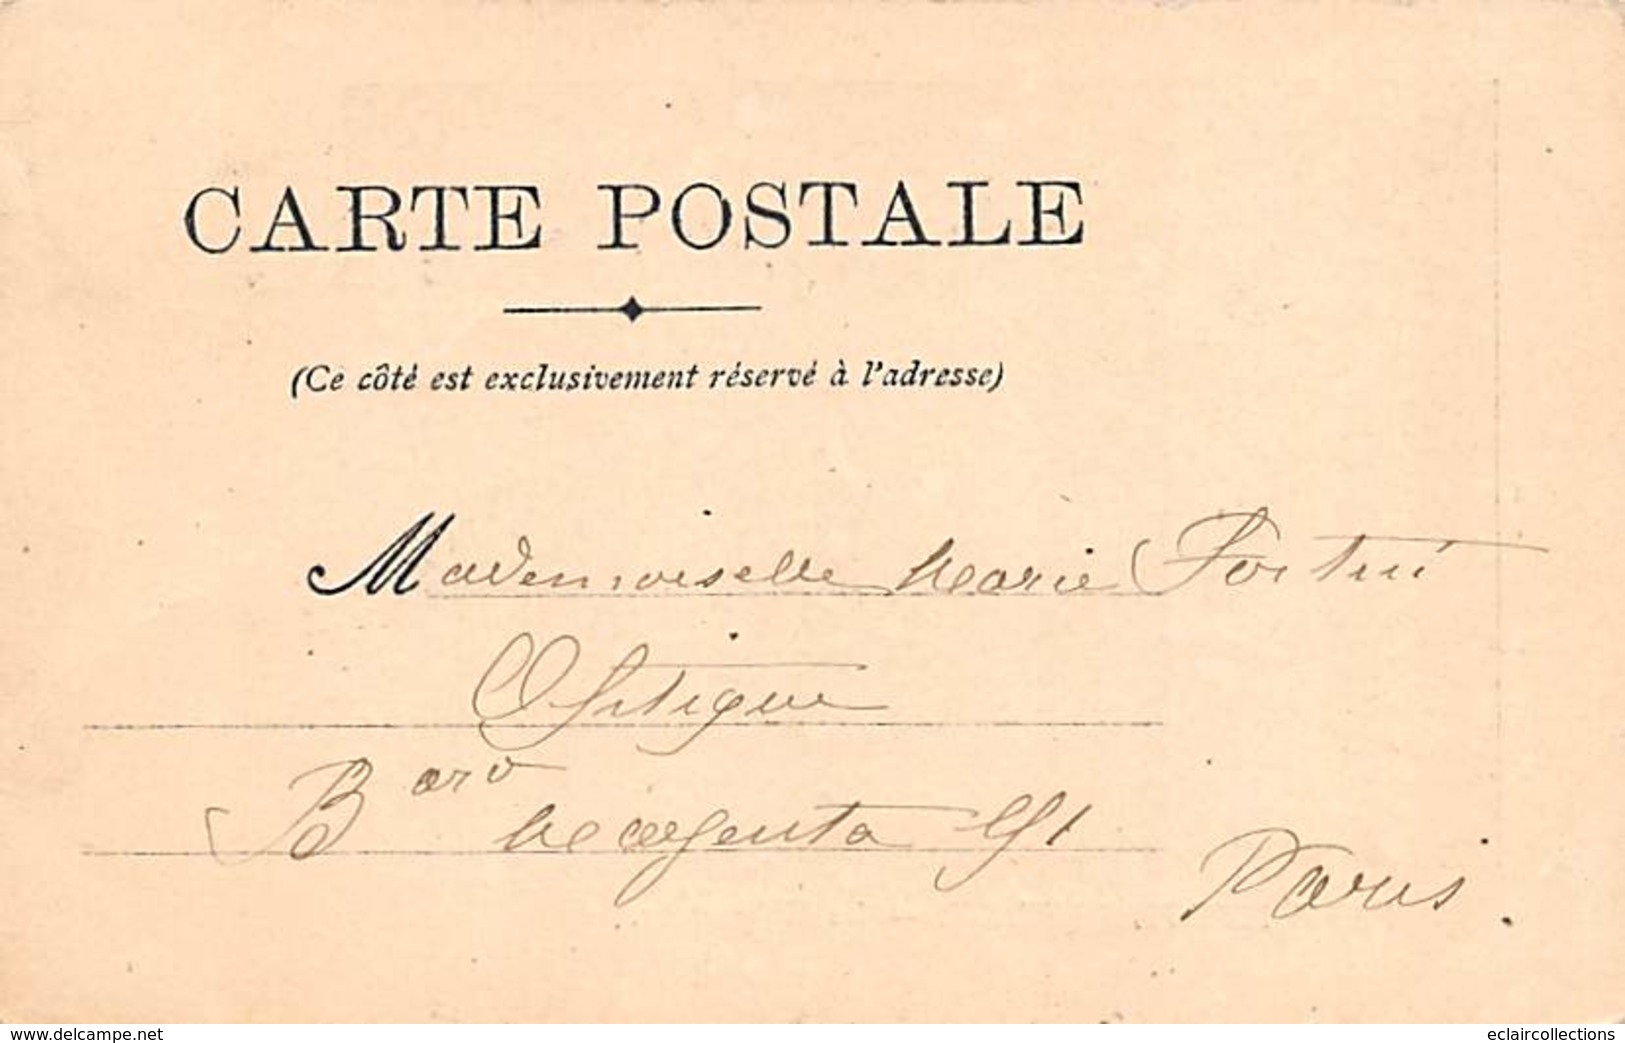 CARTE POSTALE
(Ce côté est exclusivement réservé à l'adresse)
Mademoiselle Marie
Optique
Bard Magenta 91
Paris.
www.delcampe.net
eclaircollections